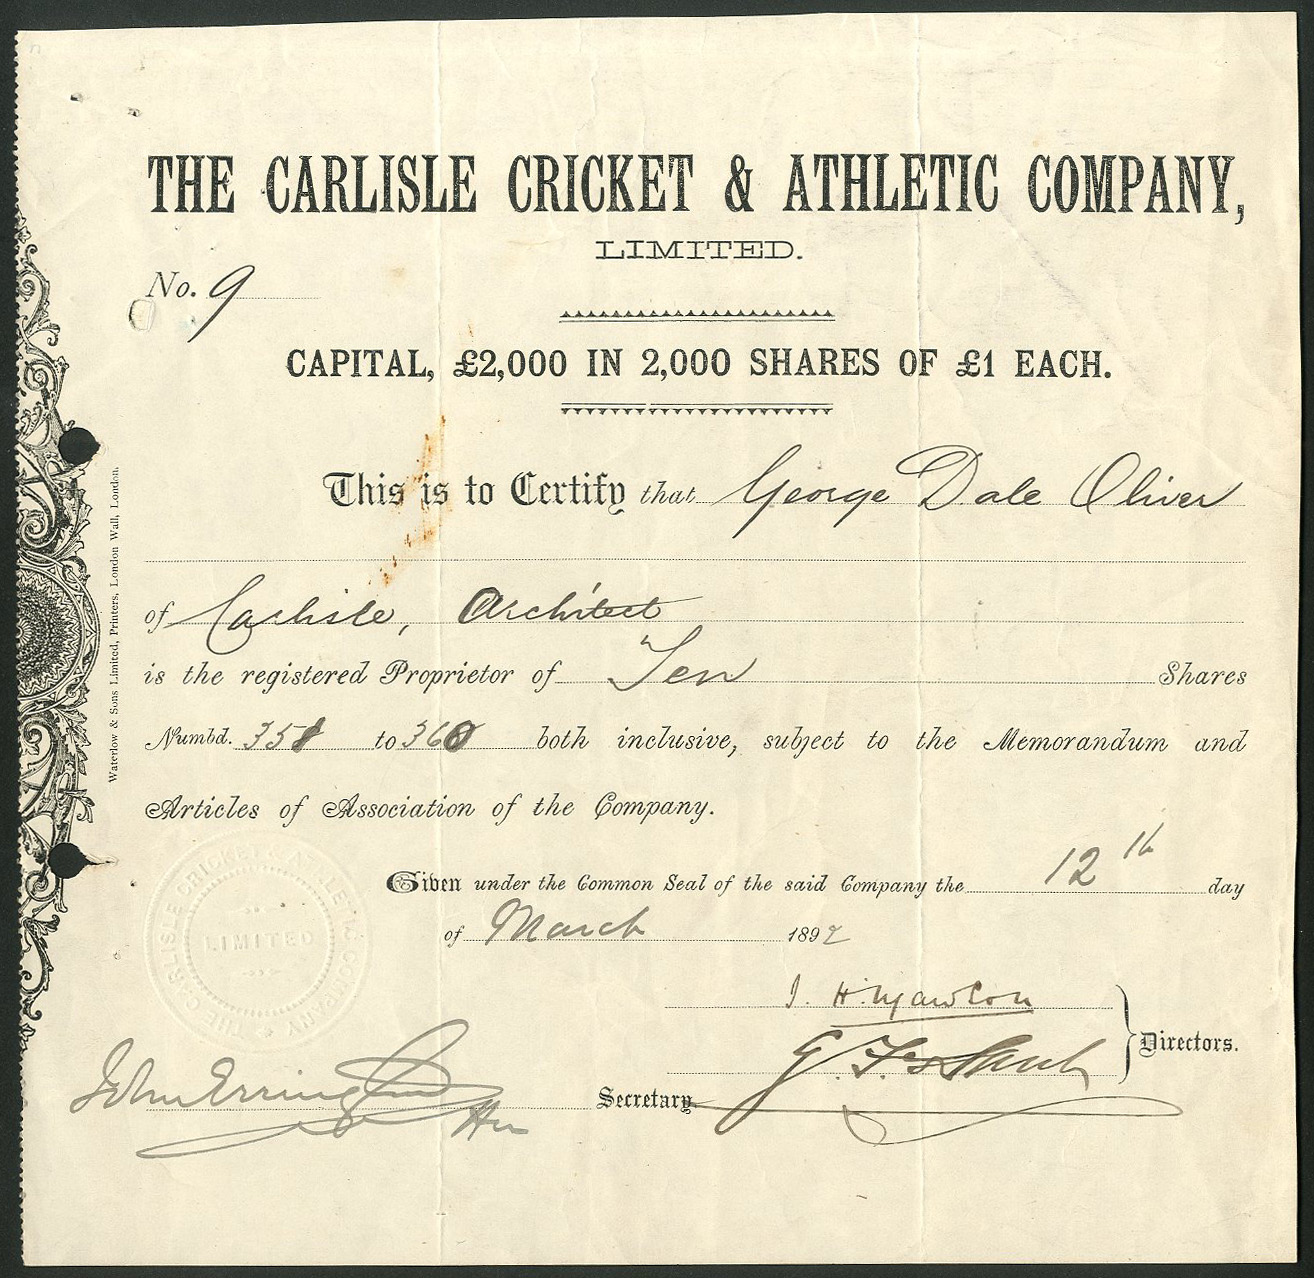 THE CARLISLE CRICKET & ATHLETIC COMPANY,
LIMITED.
No. 9
CAPITAL, £2,000 IN 2,000 SHARES OF £1 EACH.
This is to Certify that George Dale Oliver
of Carlisle, Architect
is the registered Proprietor of Ten Shares
Numbd. 351 to 360 both inclusive, subject to the Memorandum and
Articles of Association of the Company.
Given under the Common Seal of the said Company the 12th day
of March 1892
Directors.
John Errington
Hon
Secretary
Waterlow & Sons Limited, Printers, London Wall, London.
THE CARLISLE CRICKET & ATHLETIC COMPANY
LIMITED